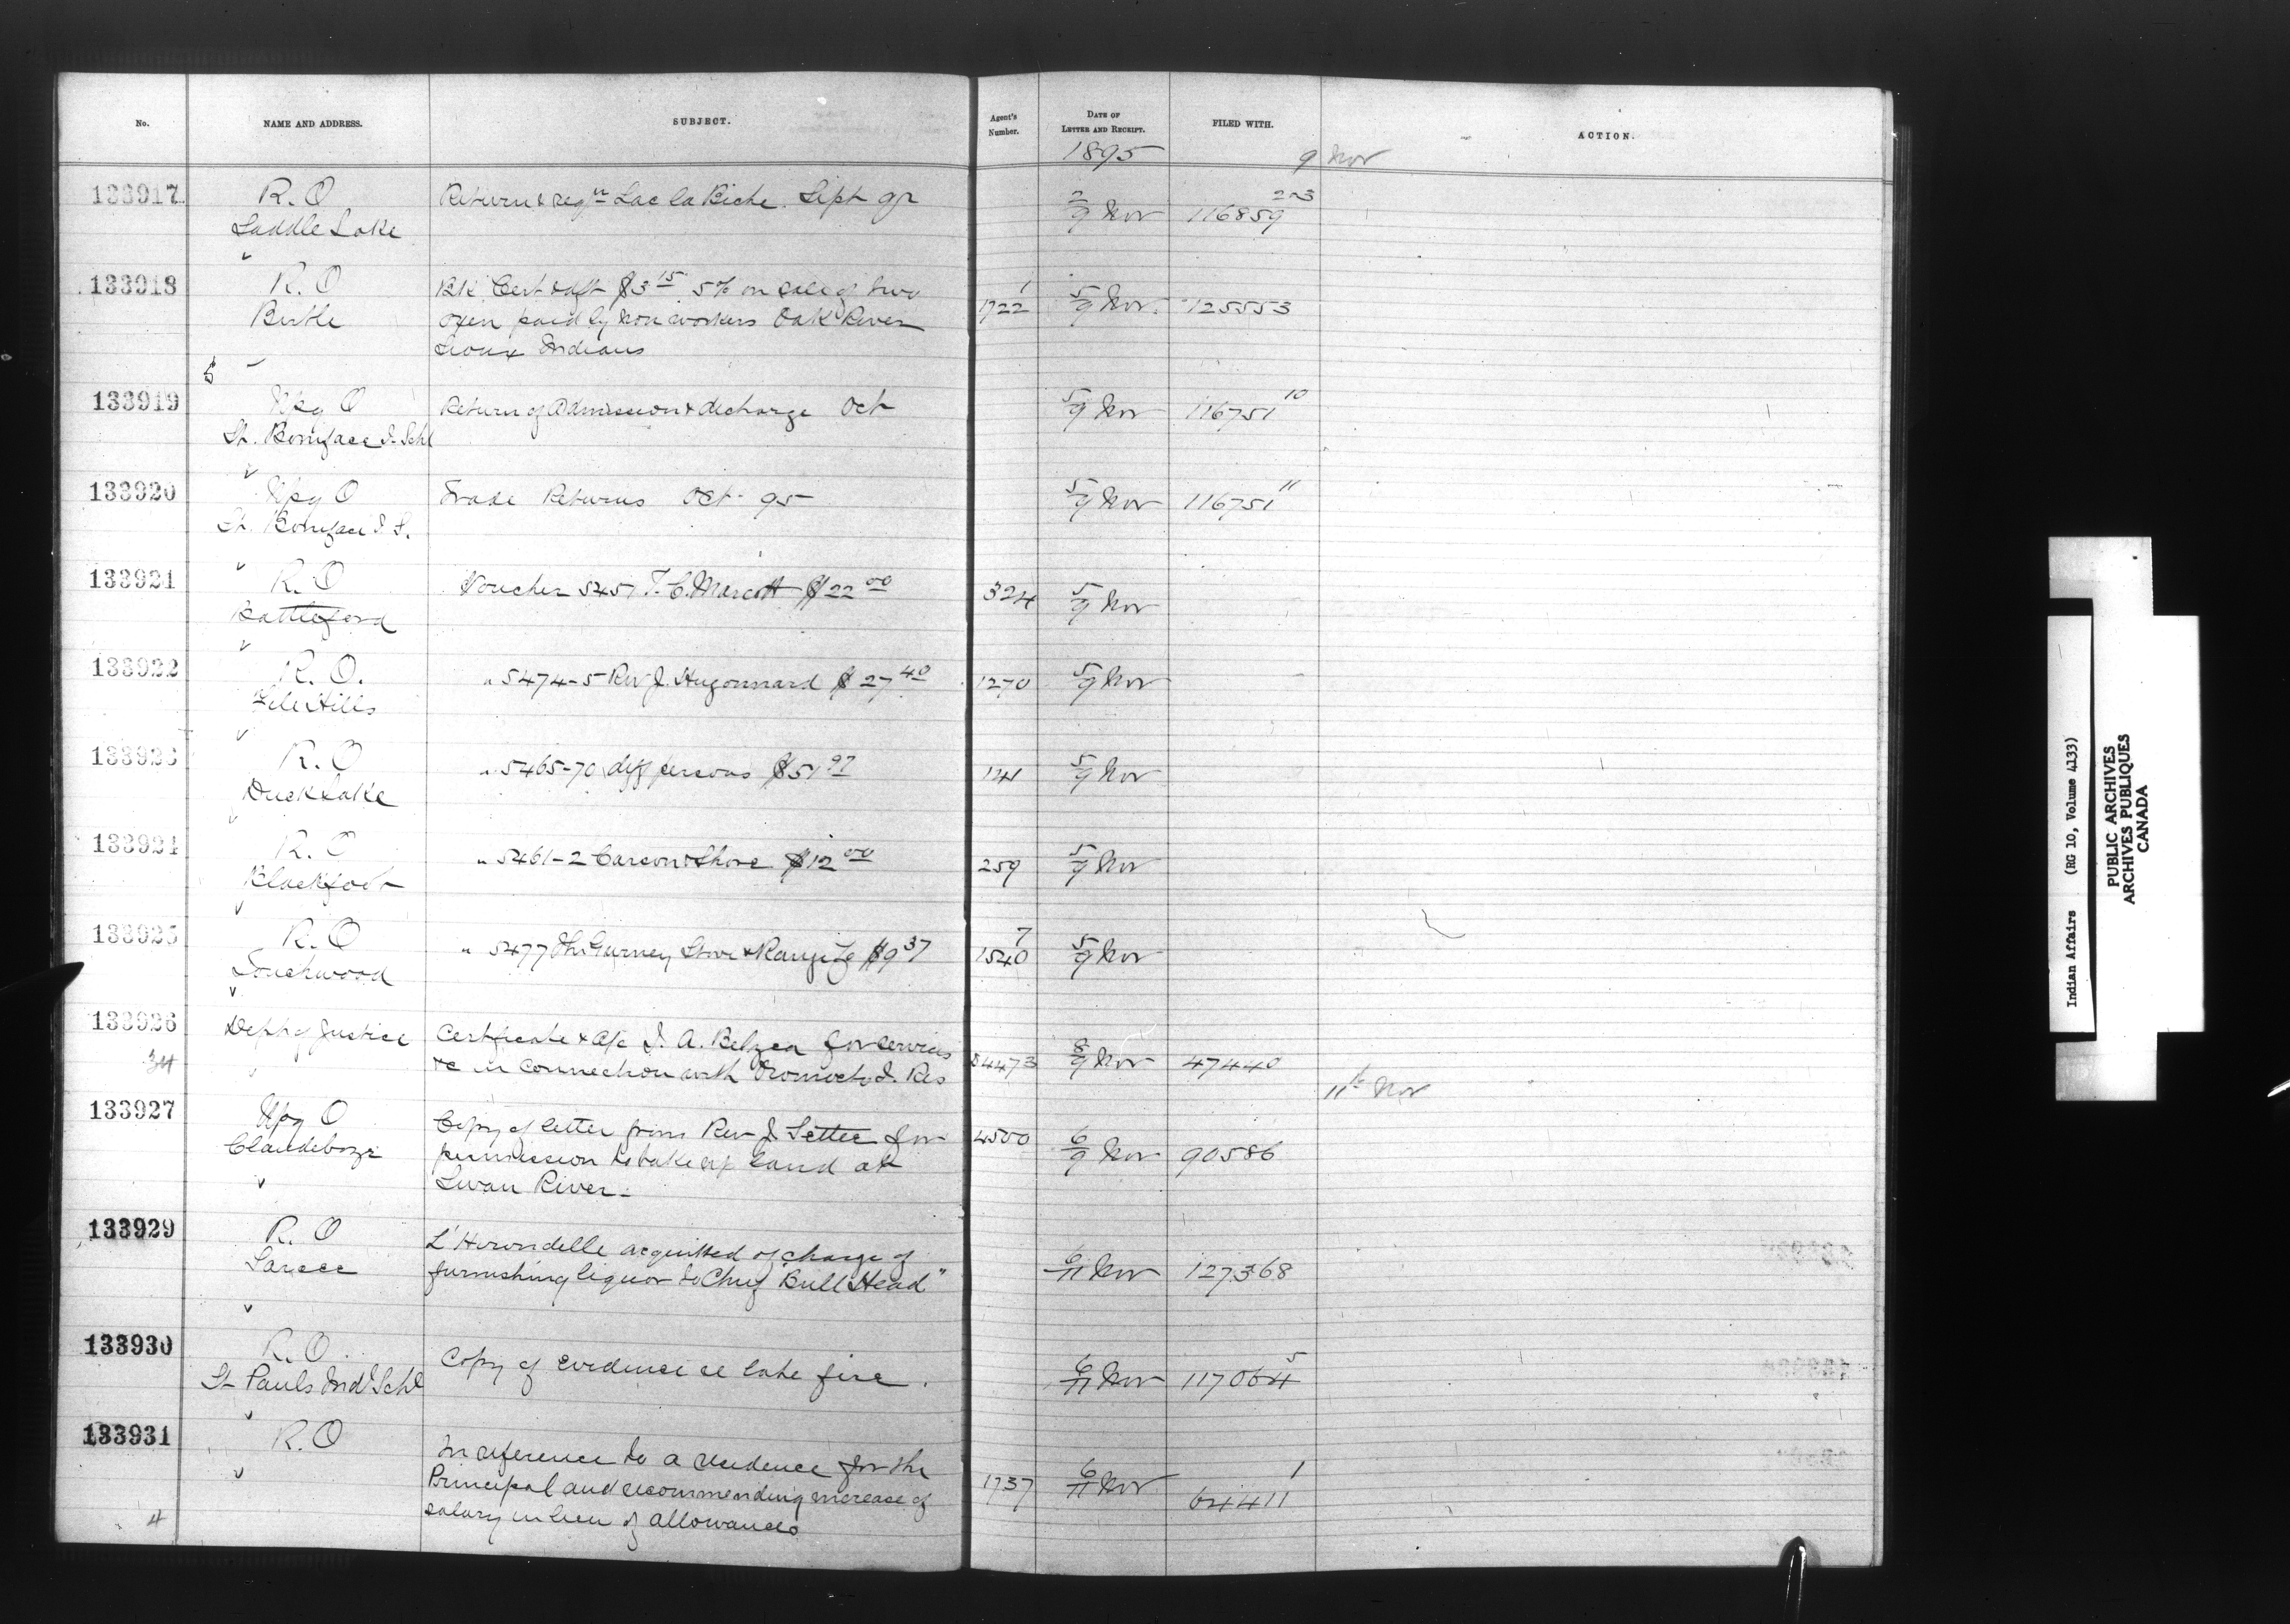 No.
NAME AND ADDRESS.
SUBJECT.
Agent's
Number.
DATE OF
LETTER AND RECEIPT.
FILED WITH.
ACTION.
1895
9 Nov
133917
R. O
Saddle Lake
Return & reqn Lac la Biche. Sept 95
2/9 Nov
116859 2&3
133918
R. O
Birtle
Bk. Cert & dft $3 15 5% on sale of two
oxen paid by non workers Oak River
Sioux Indians
1722 1
5/9 Nov.
125553
5
133919
Wpg O
St. Boniface I. Schl
Return of Admission & discharge Oct
5/9 Nov
116751 10
133920
Wpg O
St. Boniface I S.
Trade Returns Oct - 95
5/9 Nov
116751 11
133921
R. O
Battleford
Voucher 5451 T. C. Marcott $22 00
324
5/9 Nov
133922
R. O.
File Hills
" 5474-5 Rev J. Hugonnard $27 40
1270
5/9 Nov
133923
R. O
Duck Lake
" 5465-70 diff persons $51 97
121
5/9 Nov
133924
R. O
Blackfoot
" 5461-2 Carson & Shore $12 00
259
5/9 Nov
133925
R. O
Touchwood
" 5477 The Gurney Stove & Range Co $9 37
1540 7
5/9 Nov
133926
34
Dept of Justice
Certificate & a/c I. A. Belyea for services
&c in connection with Oromocto I. Res
84473
8/9 Nov
47440
11th Nov
133927
Wpg O
Clandeboye
Copy of letter from Rev J Settee for
permission to take up land at
Swan River -
4500
6/9 Nov
90586
133929
R. O
Sarcee
L'Hirondelle acquitted of charge of
furnishing liquor to Chief "Bull Head"
6/11 Nov
127368
133930
R. O.
St Pauls Indl Schl
Copy of evidence re late fire.
6/11 Nov
117064 5
133931
R. O
In reference to a residence for the
Principal and recommending increase of
salary in lieu of allowances
1737
6/11 Nov
64411 1
4
Indian Affairs (RG 10, Volume 4133)
PUBLIC ARCHIVES
ARCHIVES PUBLIQUES
CANADA